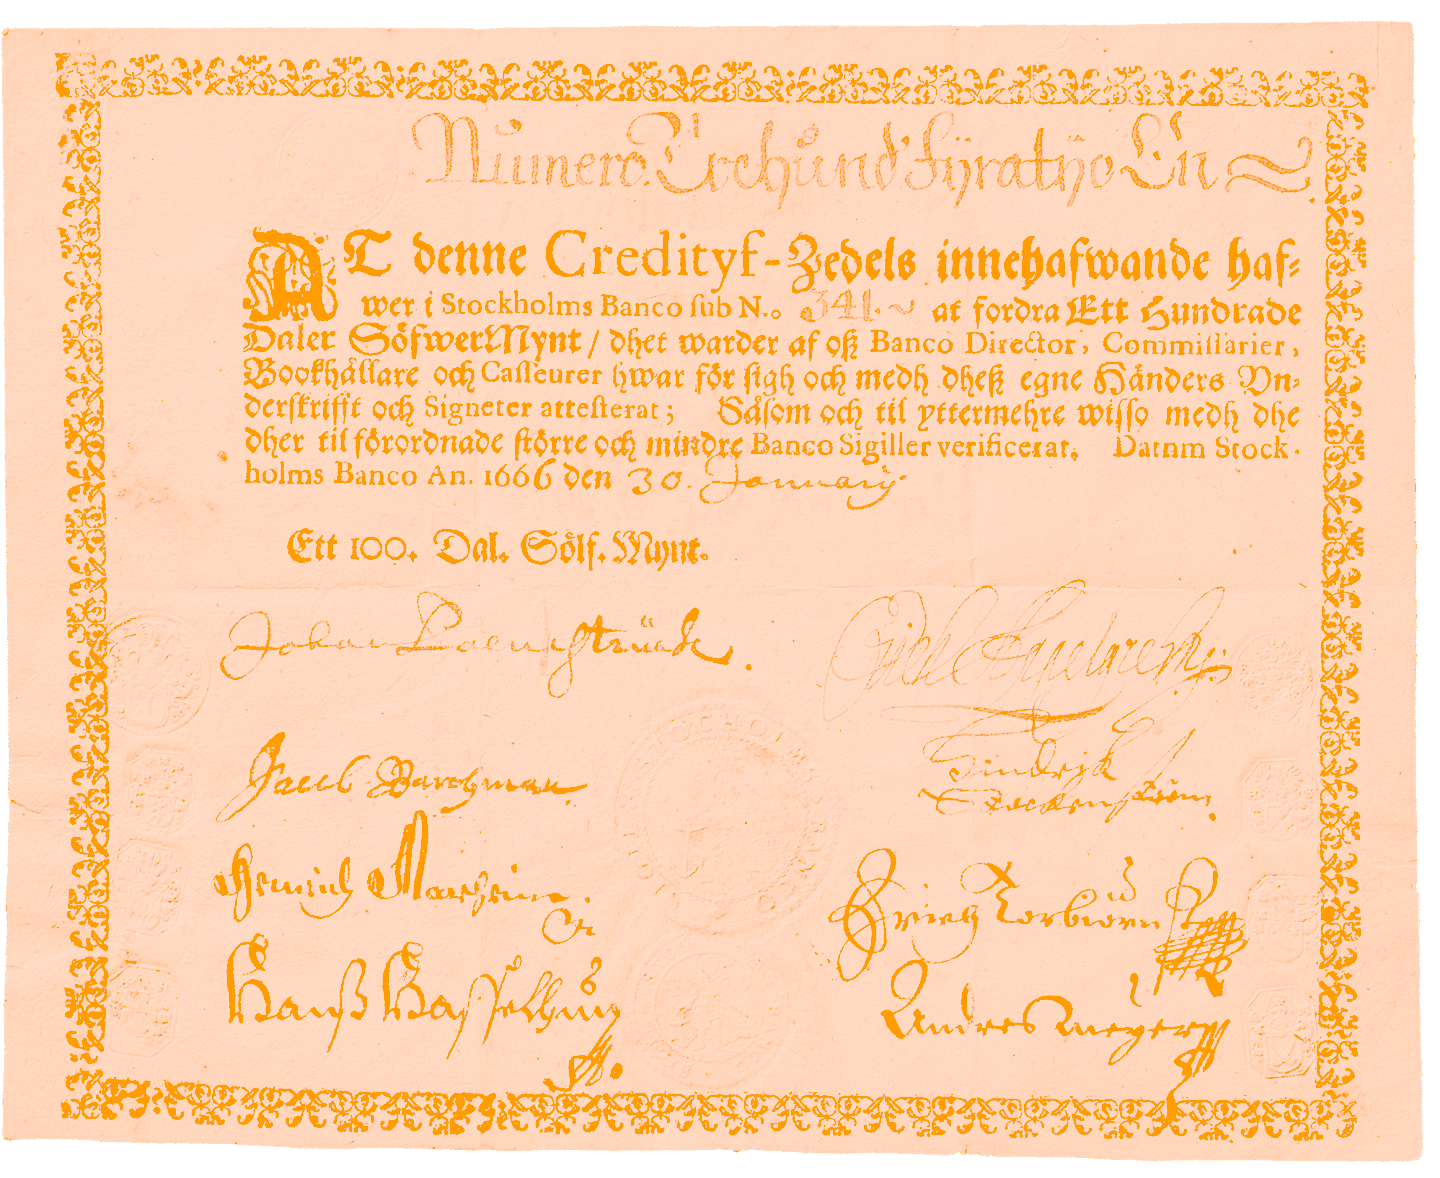 Numero. Trehund' fÿratÿo En
AT denne Credityf-Zedels innehafwande haf-
wer i Stockholms Banco sub N.o 341. at fordra Ett Hundrade
Daler SölfwerMynt / dhet warder af oß Banco Director, Commissarier,
Bookhållare och Casseurer hwar för sigh och medh dheß egne Händers Vn-
derskrifft och Signeter attesterat; Såsom och til yttermehre wisso medh dhe
dher til förordnade större och mindre Banco Sigiller verificerat. Datum Stock-
holms Banco An. 1666 den 30. Januarij
Ett 100. Dal. Sölf. Mynt.
Johan
Jacob Barchman
Hindrijk
Hanß
Andres Meyer
STOCKHOLMS BANCO